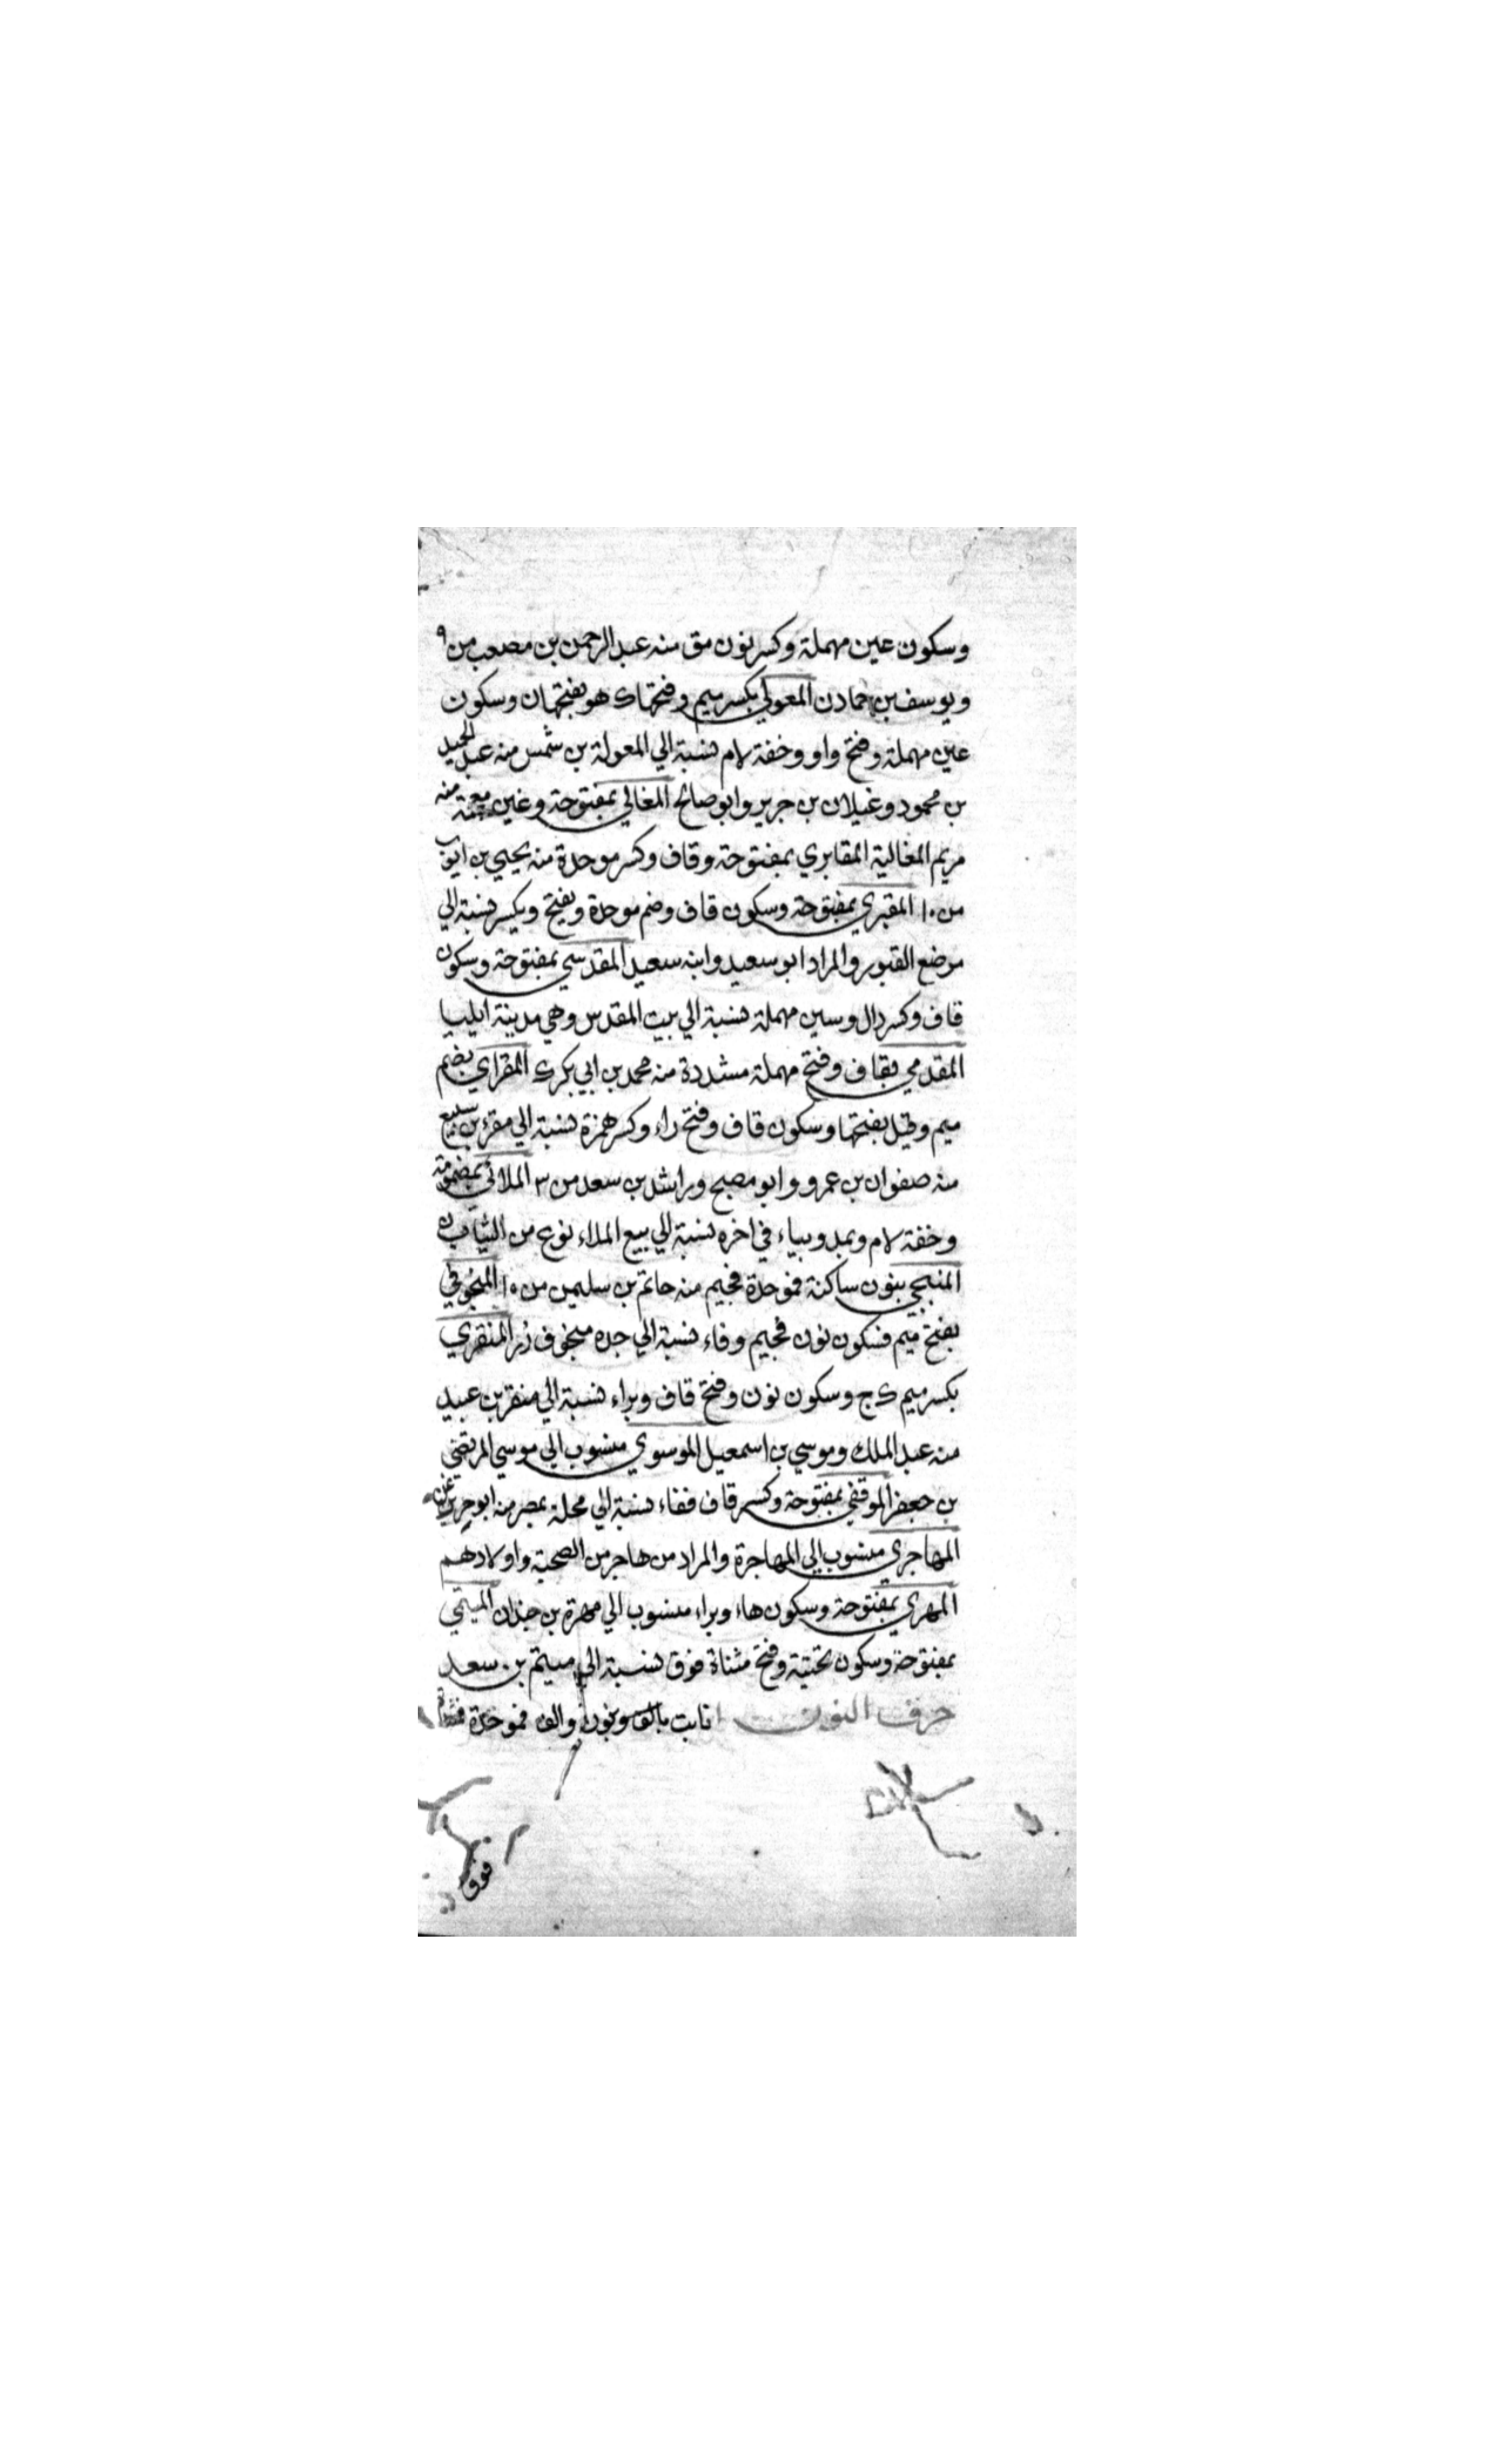 وسكون عين مهملة وكسر نون مق منه عبد الرحمن بن مصعب من ٩
ويوسف بن حماد ن المعولي بكسر ميم وفتحها ك هو بفتحها ن وسكون
عين مهملة وفتح واو وخفة لام نسبة الي المعولة بن شمس منه عبد الحميد
بن محمود وغيلان بن جرير وابو صالح المغالي بمفتوحة وغين معجمة منه
مريم المغالية المقابري بمفتوحة وقاف وكسر موحدة منه يحيي بن ايوب
من ١٠ المقبري بمفتوحة وسكون قاف وضم موحدة ويفتح ويكسر نسبة الي
موضع القبور والمراد ابو سعيد وابنه سعيد المقدسي بمفتوحة وسكون
قاف وكسر دال وسين مهملة نسبة الي بيت المقدس وهي مدينة ايليا
المقدمي بقاف وفتح مهملة مشددة منه محمد بن ابي بكر ك المقراي بضم
ميم وقيل بفتحها وسكون قاف وفتح راء وكسر همزة نسبة الي مقرء بن سبيع
منه صفوان بن عمرو وابو مصبح وراشد بن سعد من ٣ الملائي بمضمومة
وخفة لام وبمد وبياء في اخره نسبة الي بيع الملاء نوع من الثياب ن
المنبجي بنون ساكنة فموحدة فجيم منه حاتم بن سليمن من ١٠ المنجوفي
بفتح ميم فسكون نون فجيم وفاء نسبة الي جده منجوف ز المنقري
بكسر ميم ك ج وسكون نون وفتح قاف وبراء نسبة الي منقر بن عبيد
منه عبد الملك وموسي بن اسمعيل الموسوي منسوب الي موسي المرتضي
بن جعفر الموقفي بمفتوحة وكسر قاف ففاء نسبة الي محلة بمصر منه ابو حريز
المهاجري منسوب الي المهاجرة والمراد من هاجر من الصحبة واولادهم
المهري بمفتوحة وسكون هاء وبراء منسوب الي مهرة بن حيدان الميتمي
بمفتوحة وسكون تحتية وفتح مثناة فوق نسبة الي ميتم بن سعد
حرف النون نابت بالف وبنون والف فموحدة
فوق